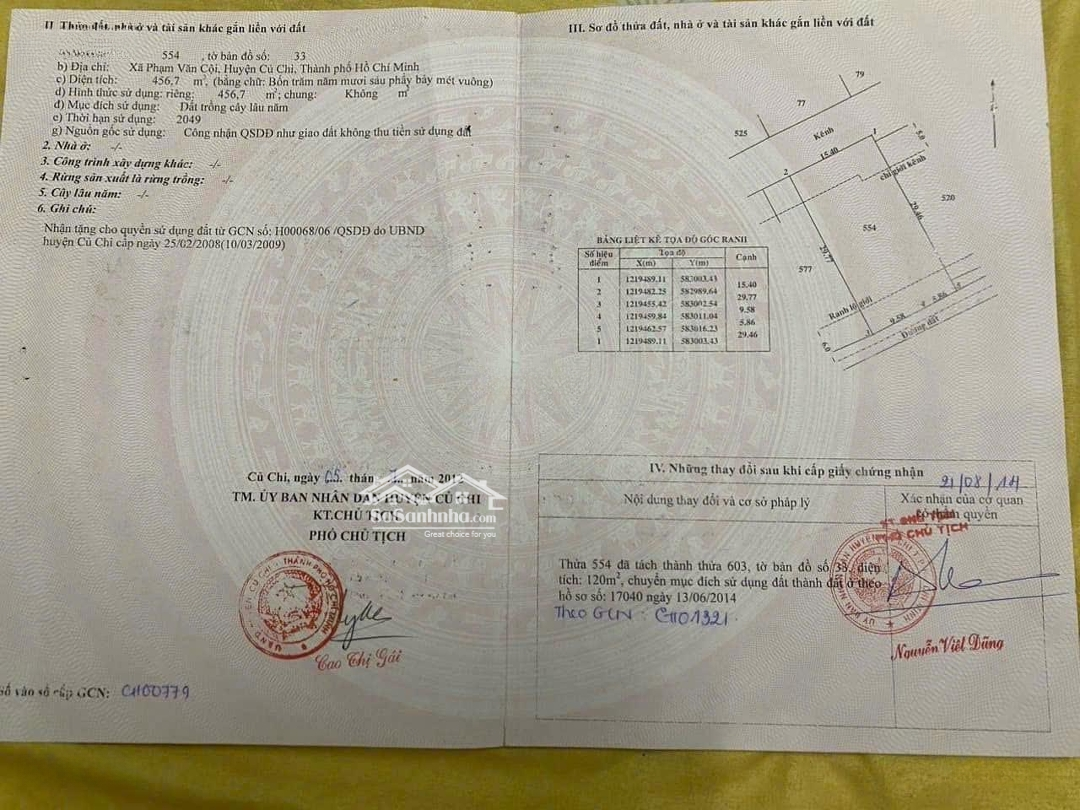 II Thửa đất, nhà ở và tài sản khác gắn liền với đất
554 , tờ bản đồ số: 33
b) Địa chỉ: Xã Phạm Văn Cội, Huyện Củ Chi, Thành phố Hồ Chí Minh
c) Diện tích: 456,7 m², (bằng chữ: Bốn trăm năm mươi sáu phẩy bảy mét vuông)
d) Hình thức sử dụng: riêng: 456,7 m²; chung: Không m²
đ) Mục đích sử dụng: Đất trồng cây lâu năm
e) Thời hạn sử dụng: 2049
g) Nguồn gốc sử dụng: Công nhận QSDĐ như giao đất không thu tiền sử dụng đất
2. Nhà ở: -/-
3. Công trình xây dựng khác: -/-
4. Rừng sản xuất là rừng trồng: -/-
5. Cây lâu năm: -/-
6. Ghi chú:
Nhận tặng cho quyền sử dụng đất từ GCN số: H00068/06 /QSDĐ do UBND
huyện Củ Chi cấp ngày 25/02/2008(10/03/2009)
Củ Chi, ngày 05 thán 2012
TM. ỦY BAN NHÂN DÂN HUYỆN CỦ CHI
KT.CHỦ TỊCH
PHÓ CHỦ TỊCH
Cao Thị Gái
Số vào sổ cấp GCN: CH00779
III. Sơ đồ thửa đất, nhà ở và tài sản khác gắn liền với đất
79
77
525
Kênh
15.40
1
5.0
2
chỉ giới kênh
520
29.46
554
29.77
577
Ranh lộ giới
5.86
5
4
9.58
3
Đường đất
6.0
BẢNG LIỆT KÊ TỌA ĐỘ GÓC RANH
Số hiệu điểm Tọa độ Cạnh
X(m) Y(m)
1 1219489.11 583003.43
15.40
2 1219482.25 582989.64
29.77
3 1219455.42 583002.54
9.58
4 1219459.84 583011.04
5.86
5 1219462.57 583016.23
29.46
1 1219489.11 583003.43
IV. Những thay đổi sau khi cấp giấy chứng nhận
Nội dung thay đổi và cơ sở pháp lý
21/08/14
Xác nhận của cơ quan
có thẩm quyền
KT CHỦ TỊCH
PHÓ CHỦ TỊCH
Thửa 554 đã tách thành thửa 603, tờ bản đồ số 33, diện
tích: 120m², chuyển mục đích sử dụng đất thành đất ở theo
hồ sơ số: 17040 ngày 13/06/2014
Theo GCN : CH01321
Nguyễn Việt Dũng
SoSanhnha.com
Great choice for you